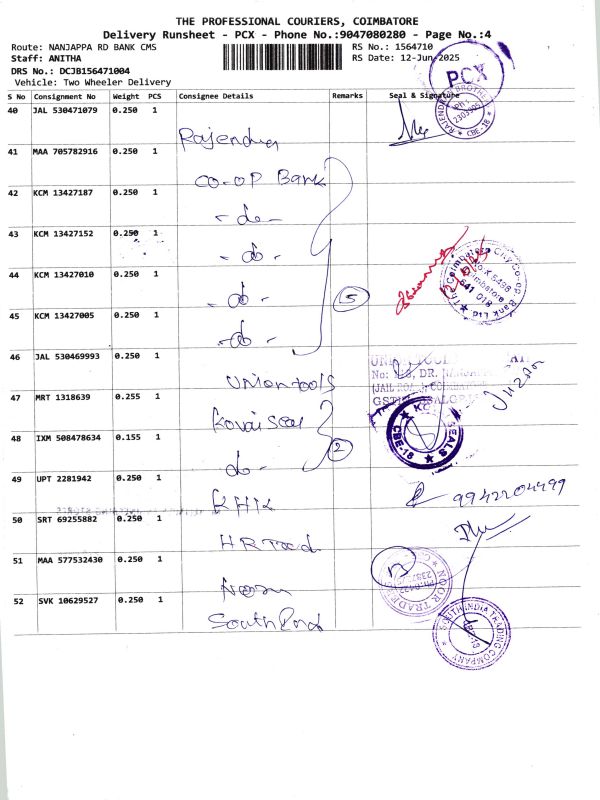 THE PROFESSIONAL COURIERS, COIMBATORE
Delivery Runsheet - PCX - Phone No.:9047080280 - Page No.:4
Route: NANJAPPA RD BANK CMS
RS No.: 1564710
Staff: ANITHA
RS Date: 12-Jun-2025
DRS No.: DCJB156471004
Vehicle: Two Wheeler Delivery
PCX
S No Consignment No Weight PCS Consignee Details Remarks Seal & Signature
40 JAL 530471079 0.250 1
RAJENDRA BROTHE
CBE-18
Rajendra
41 MAA 705782916 0.250 1
CO-OP Bank
42 KCM 13427187 0.250 1
- do -
43 KCM 13427152 0.250 1
- do -
The Coimbatore City Co-op Bank Ltd
641 018
44 KCM 13427010 0.250 1
- do - 5
45 KCM 13427005 0.250 1
- do -
46 JAL 530469993 0.250 1
Union tools
47 MRT 1318639 0.255 1
Kovai Seal
SEALS
CBE-18
48 IXM 508478634 0.155 1
do - 2
49 UPT 2281942 0.250 1
KHK
9942204499
50 SRT 69255882 0.250 1
HR Traed
51 MAA 577532430 0.250 1
Noor
NOOR TRADE
52 SVK 10629527 0.250 1
South Ind
SOUTH INDIA TRADING COMPANY